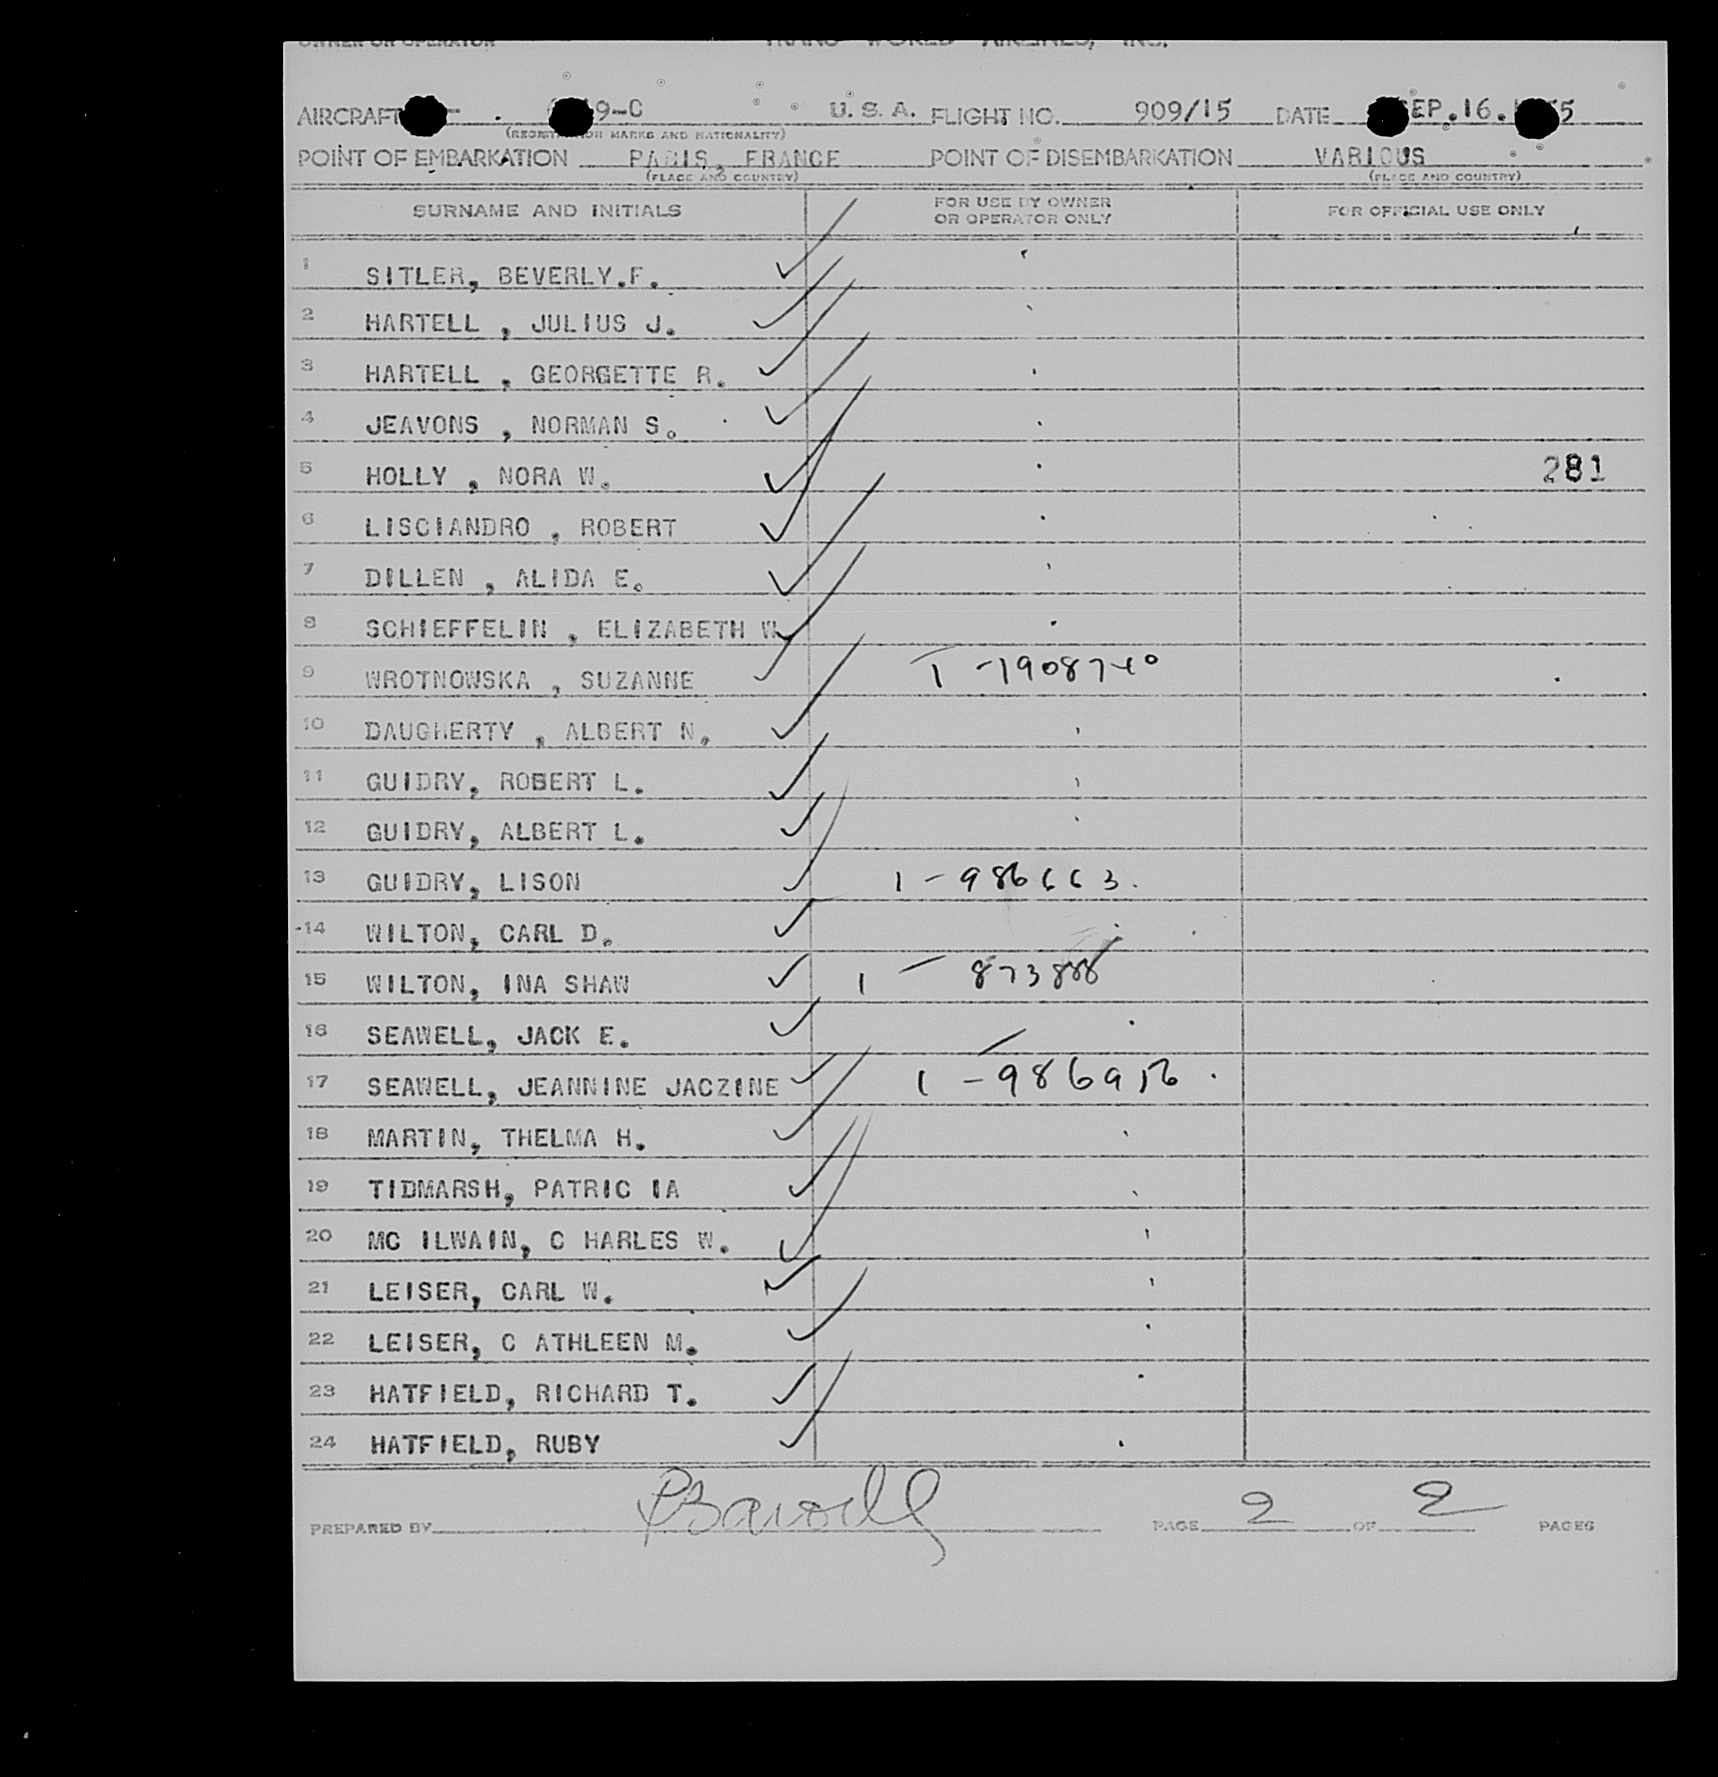 OWNER OR OPERATOR TRANS WORLD AIRLINES, INC.
AIRCRAFT 9-C U.S.A. FLIGHT NO. 909/15 DATE SEP.16. 55
(REGISTRATION MARKS AND NATIONALITY)
POINT OF EMBARKATION PARIS, FRANCE POINT OF DISEMBARKATION VARIOUS
(PLACE AND COUNTRY) (PLACE AND COUNTRY)
SURNAME AND INITIALS FOR USE BY OWNER OR OPERATOR ONLY FOR OFFICIAL USE ONLY
1 SITLER, BEVERLY.F.
2 HARTELL , JULIUS J.
3 HARTELL , GEORGETTE R.
4 JEAVONS , NORMAN S.
5 HOLLY , NORA W. 281
6 LISCIANDRO , ROBERT
7 DILLEN , ALIDA E.
8 SCHIEFFELIN , ELIZABETH W.
9 WROTNOWSKA , SUZANNE
10 DAUGHERTY , ALBERT N.
11 GUIDRY, ROBERT L.
12 GUIDRY, ALBERT L.
13 GUIDRY, LISON 1-986663.
14 WILTON, CARL D.
15 WILTON, INA SHAW
16 SEAWELL, JACK E.
17 SEAWELL, JEANNINE JACZINE
18 MARTIN, THELMA H.
19 TIDMARSH, PATRIC IA
20 MC ILWAIN, C HARLES W.
21 LEISER, CARL W.
22 LEISER, C ATHLEEN M.
23 HATFIELD, RICHARD T.
24 HATFIELD, RUBY
PREPARED BY PAGE 2 OF 2 PAGES